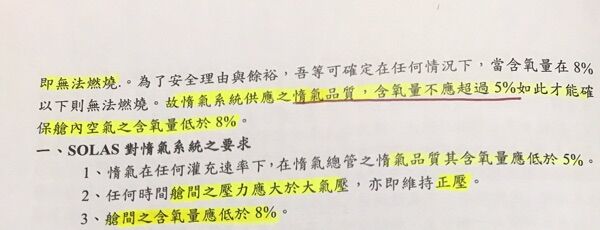 即無法燃燒.。為了安全理由與餘裕，吾等可確定在任何情況下，當含氧量在 8%
以下則無法燃燒。故惰氣系統供應之惰氣品質，含氧量不應超過 5%如此才能確
保艙內空氣之含氧量低於 8%。
一、SOLAS 對惰氣系統之要求
1、惰氣在任何灌充速率下，在惰氣總管之惰氣品質其含氧量應低於 5%。
2、任何時間艙間之壓力應大於大氣壓，亦即維持正壓。
3、艙間之含氧量應低於 8%。